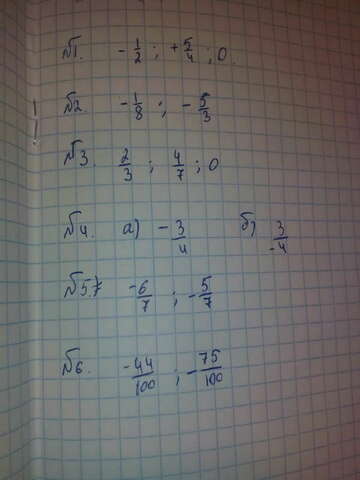 №1. -1/2 ; +5/4 ; 0.
№2. -1/8 ; -5/3
№3. 2/3 ; 4/7 ; 0
№4. а) -3/4 б) 3/-4
№57 -6/7 ; -5/7
№6. -44/100 ; -75/100